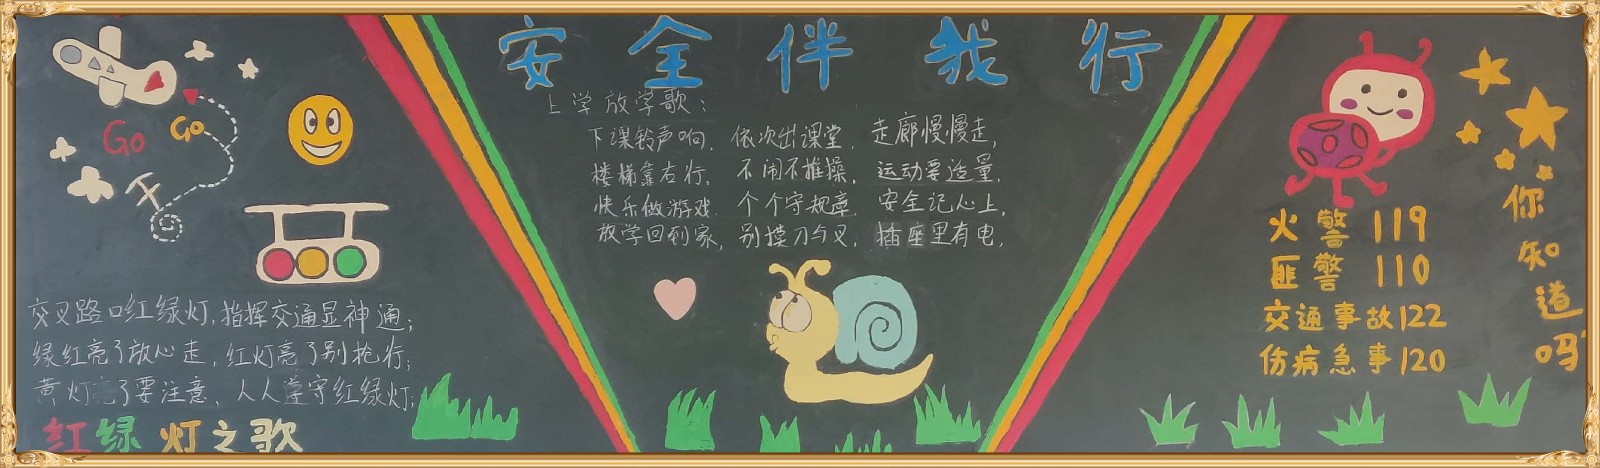 安全伴我行
Go Go
交叉路口红绿灯,指挥交通显神通;
绿红亮了放心走,红灯亮了别抢行;
黄灯亮了要注意,人人遵守红绿灯;
红绿灯之歌
上学放学歌:
下课铃声响,依次出课堂,走廊慢慢走,
楼梯靠右行,不闹不推操,运动要适量,
快乐做游戏,个个守规章,安全记心上,
放学回到家,别摸刀与叉,插座里有电,
火警119
匪警110
交通事故122
伤病急事120
你知道吗?